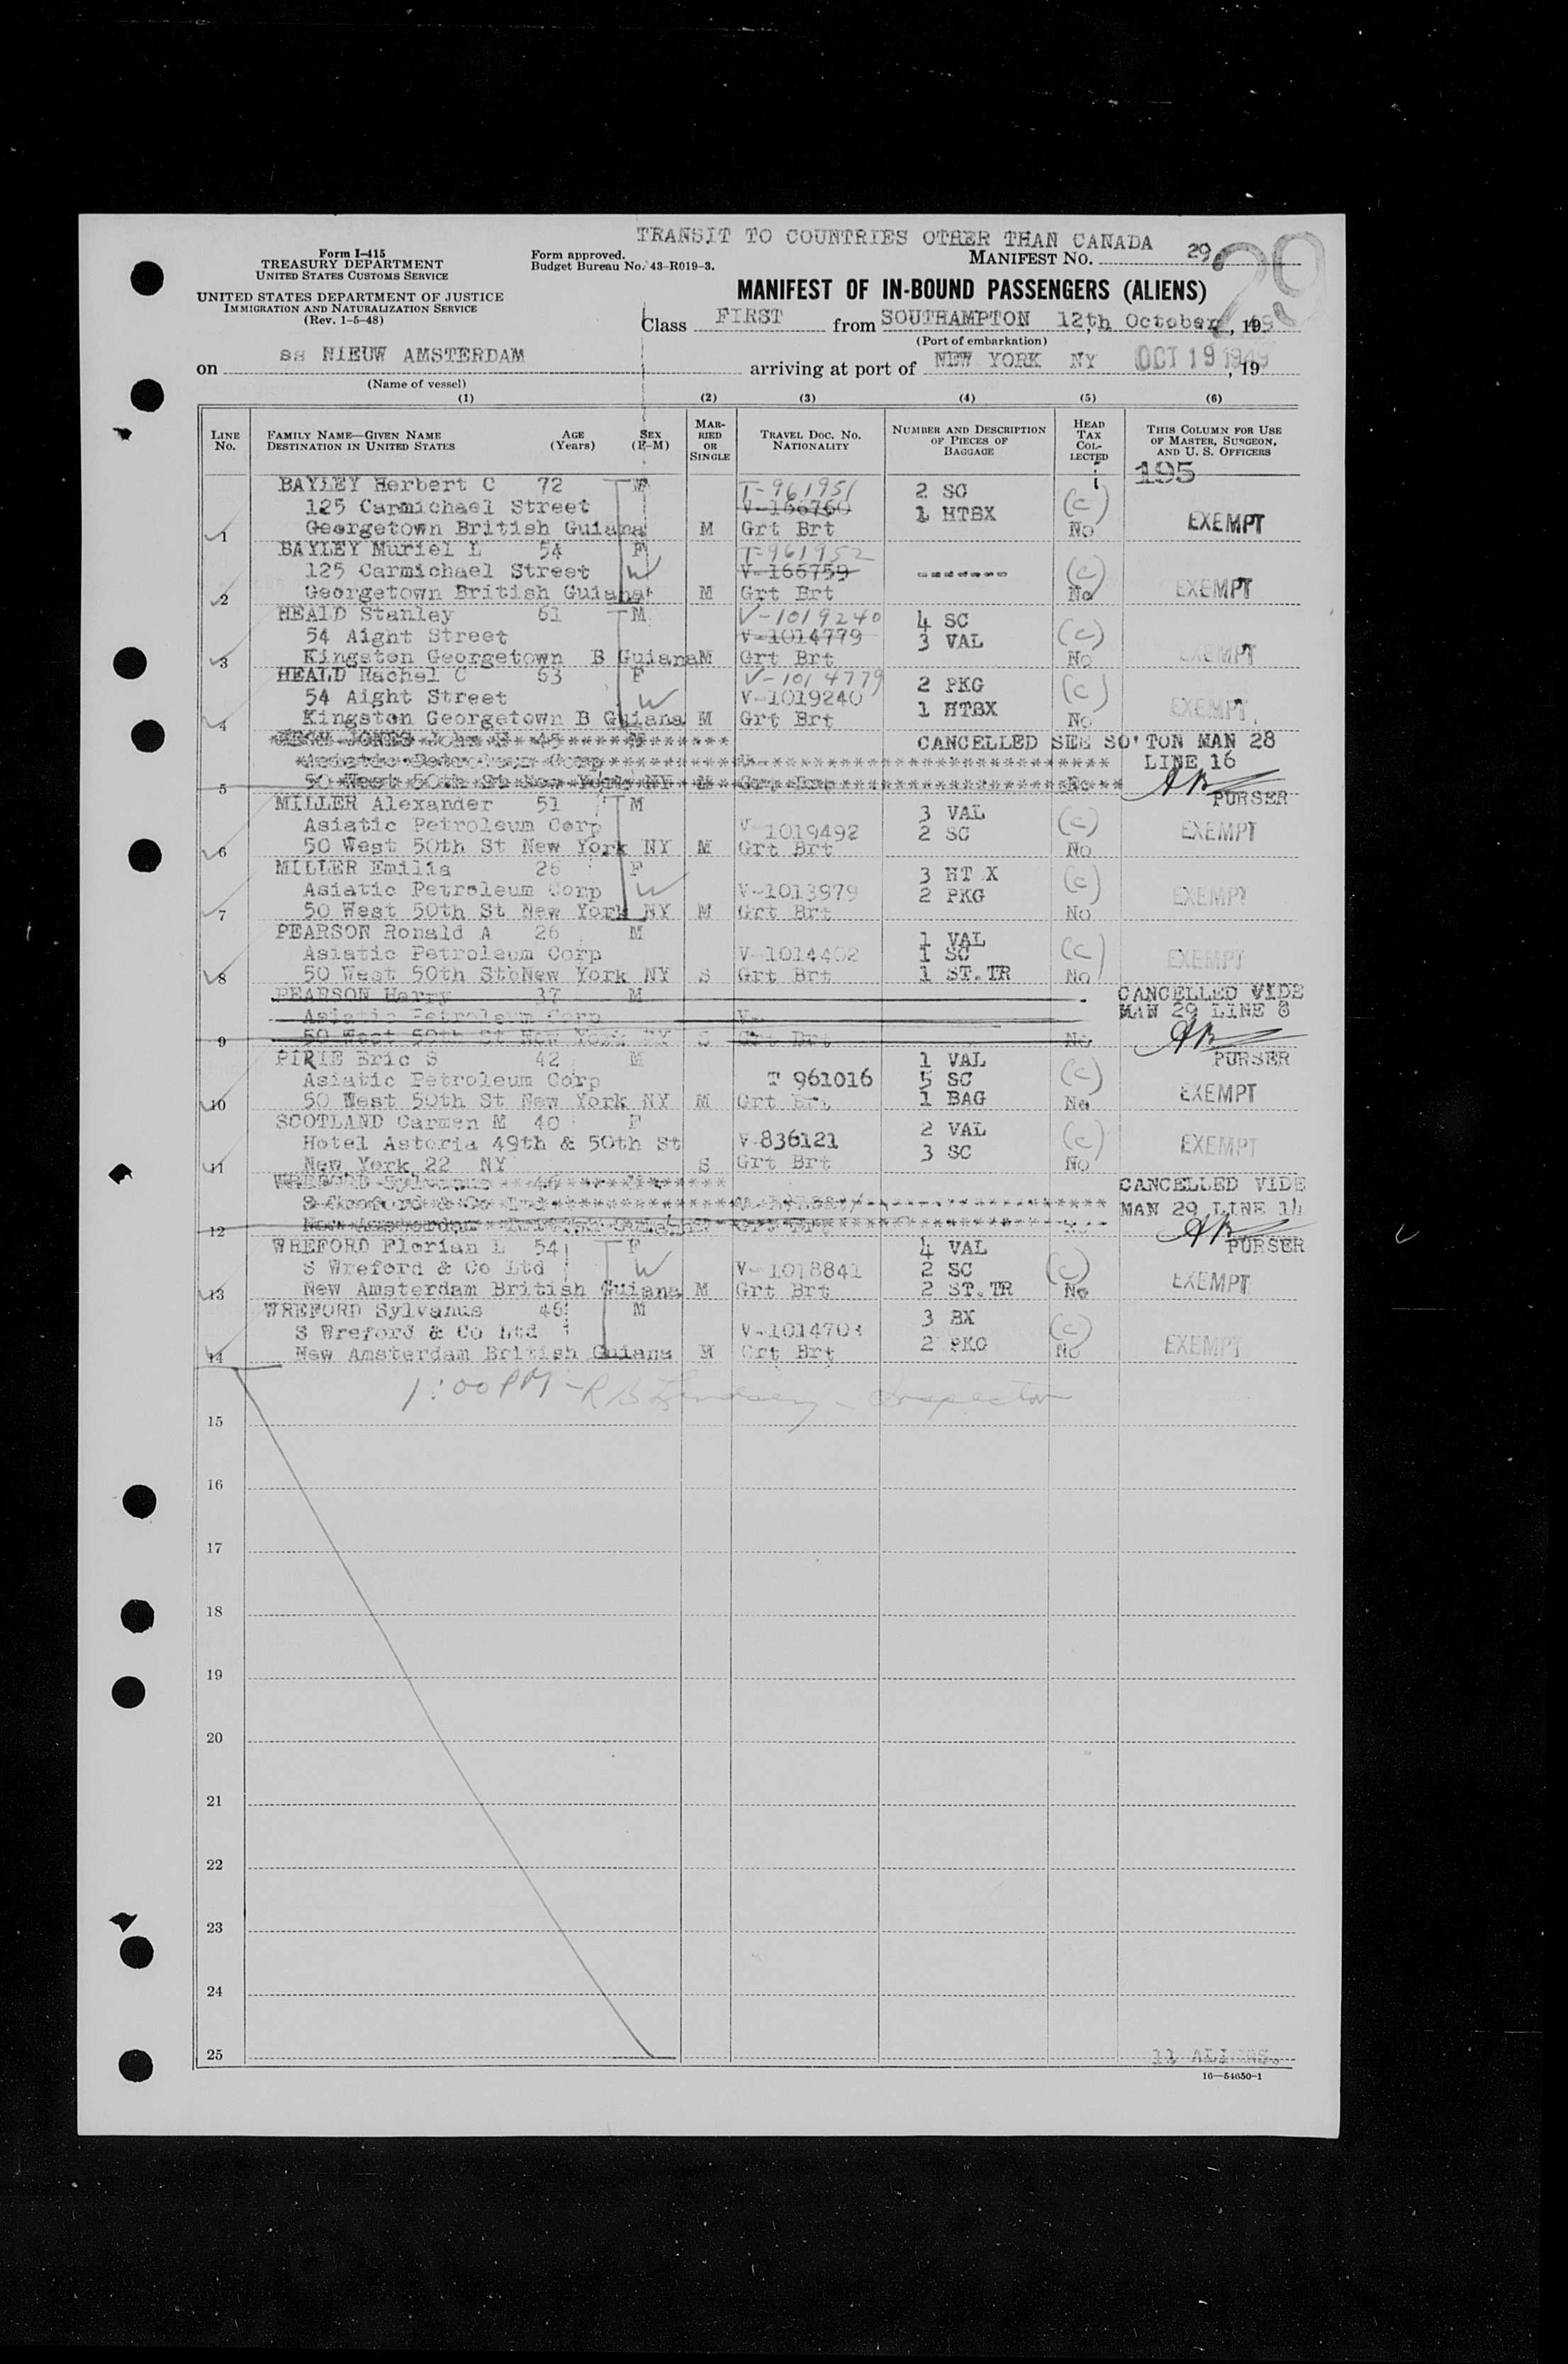 TRANSIT TO COUNTRIES OTHER THAN CANADA
Form I-415
TREASURY DEPARTMENT
UNITED STATES CUSTOMS SERVICE
Form approved.
Budget Bureau No. 43-R019-3.
MANIFEST NO. 29
29
UNITED STATES DEPARTMENT OF JUSTICE
IMMIGRATION AND NATURALIZATION SERVICE
(Rev. 1-5-48)
MANIFEST OF IN-BOUND PASSENGERS (ALIENS)
Class FIRST from SOUTHAMPTON 12th October, 19
(Port of embarkation)
on ss NIEUW AMSTERDAM arriving at port of NEW YORK NY OCT 19 1949, 19
(Name of vessel)
(1) (2) (3) (4) (5) (6)
LINE NO. FAMILY NAME—GIVEN NAME DESTINATION IN UNITED STATES AGE (Years) SEX (F-M) MARRIED OR SINGLE TRAVEL DOC. NO. NATIONALITY NUMBER AND DESCRIPTION OF PIECES OF BAGGAGE HEAD TAX COLLECTED THIS COLUMN FOR USE OF MASTER, SURGEON, AND U. S. OFFICERS
195
BAYLEY Herbert C 72 T-961951 2 SC
125 Carmichael Street V-166760 1 HTBX (c)
1 Georgetown British Guiana M Grt Brt No EXEMPT
BAYLEY Muriel L 54 F T-961952
125 Carmichael Street W V-166759 ------- (c)
2 Georgetown British Guiana M Grt Brt No EXEMPT
HEALD Stanley 61 M V-1019240 4 SC
54 Aight Street V-1014779 3 VAL (c)
3 Kingston Georgetown B Guiana M Grt Brt No EXEMPT
HEALD Rachel C 63 F V-1014779 2 PKG (c)
54 Aight Street W V-1019240 1 HTBX
4 Kingston Georgetown B Guiana M Grt Brt No EXEMPT
JONES John 45 M CANCELLED SEE SO'TON MAN 28
LINE 16
5 50 West 50th St New York NY M Grt Brt No
PURSER
MILLER Alexander 51 M 3 VAL
Asiatic Petroleum Corp V-1019492 2 SC (c) EXEMPT
6 50 West 50th St New York NY M Grt Brt No
MILLER Emilia 26 F 3 HT X (c)
Asiatic Petroleum Corp W V-1013979 2 PKG EXEMPT
7 50 West 50th St New York NY M Grt Brt No
PEARSON Ronald A 26 M 1 VAL
Asiatic Petroleum Corp V-1014402 1 SC (c) EXEMPT
8 50 West 50th St New York NY S Grt Brt 1 ST.TR No
PEARSON Harry 37 M CANCELLED VIDE
Asiatic Petroleum Corp V- MAN 29 LINE 8
9 50 West 50th St New York NY S Grt Brt No
PURSER
PIRIE Eric S 42 M 1 VAL
Asiatic Petroleum Corp T 961016 5 SC (c)
10 50 West 50th St New York NY M Grt Brt 1 BAG No EXEMPT
SCOTLAND Carmen M 40 F 2 VAL
Hotel Astoria 49th & 50th St V-836121 3 SC (c) EXEMPT
11 New York 22 NY S Grt Brt No
WREFORD Sylvanus 46 CANCELLED VIDE
S Wreford & Co Ltd MAN 29 LINE 14
12 New Amsterdam
PURSER
WREFORD Florian L 54 F 4 VAL
S Wreford & Co Ltd W V-1018841 2 SC (c)
13 New Amsterdam British Guiana M Grt Brt 2 ST.TR No EXEMPT
WREFORD Sylvanus 46 M 3 BX
S Wreford & Co Ltd V-1014703 (c)
14 New Amsterdam British Guiana M Grt Brt 2 PKG No EXEMPT
1:00 PM - R B Lindsey - Inspector
15
16
17
18
19
20
21
22
23
24
25
11 ALIENS.
16—54650-1